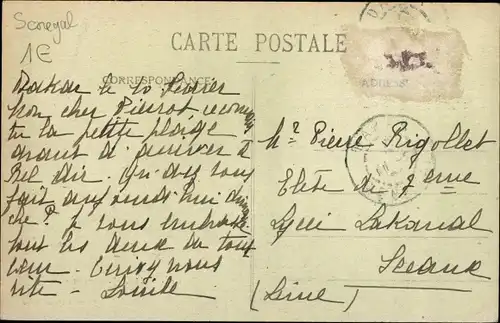 Senegal
1E
CARTE POSTALE
CORRESPONDANCE
ADRESSE
Dakar le 10 Février
Mon cher Pierrot
tu la petite plage
avant d'arriver à
Bel Air. vous
fait aujourd'hui
che? Je vous embrasse
tous les deux de tout
cœur. Ecrivez nous
vite - Lucile
Mr Pierre Rigollet
Elève de 7eme
Lycée Lakanal
Sceaux
(Seine)